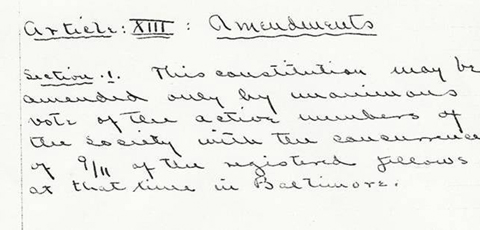 Article: XIII : Amendments
Section .1. This constitution may be
amended only by unanimous
vote of the active members of
the society with the concurrence
of 9/11 of the registered fellows
at that time in Baltimore.